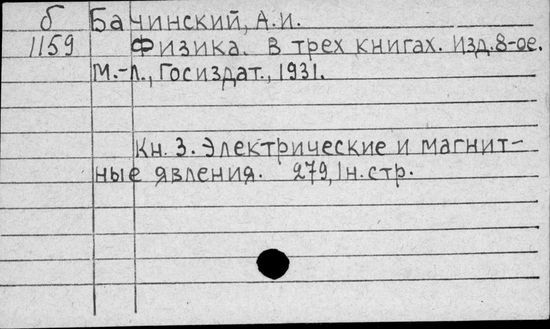 б Бачинский, А.И.
1159 Физика. В трех книгах. Изд.8-ое.
М.-Л., Госиздат., 1931.
Кн. 3. Электрические и магнит-
ные явления. 279, 1н.стр.